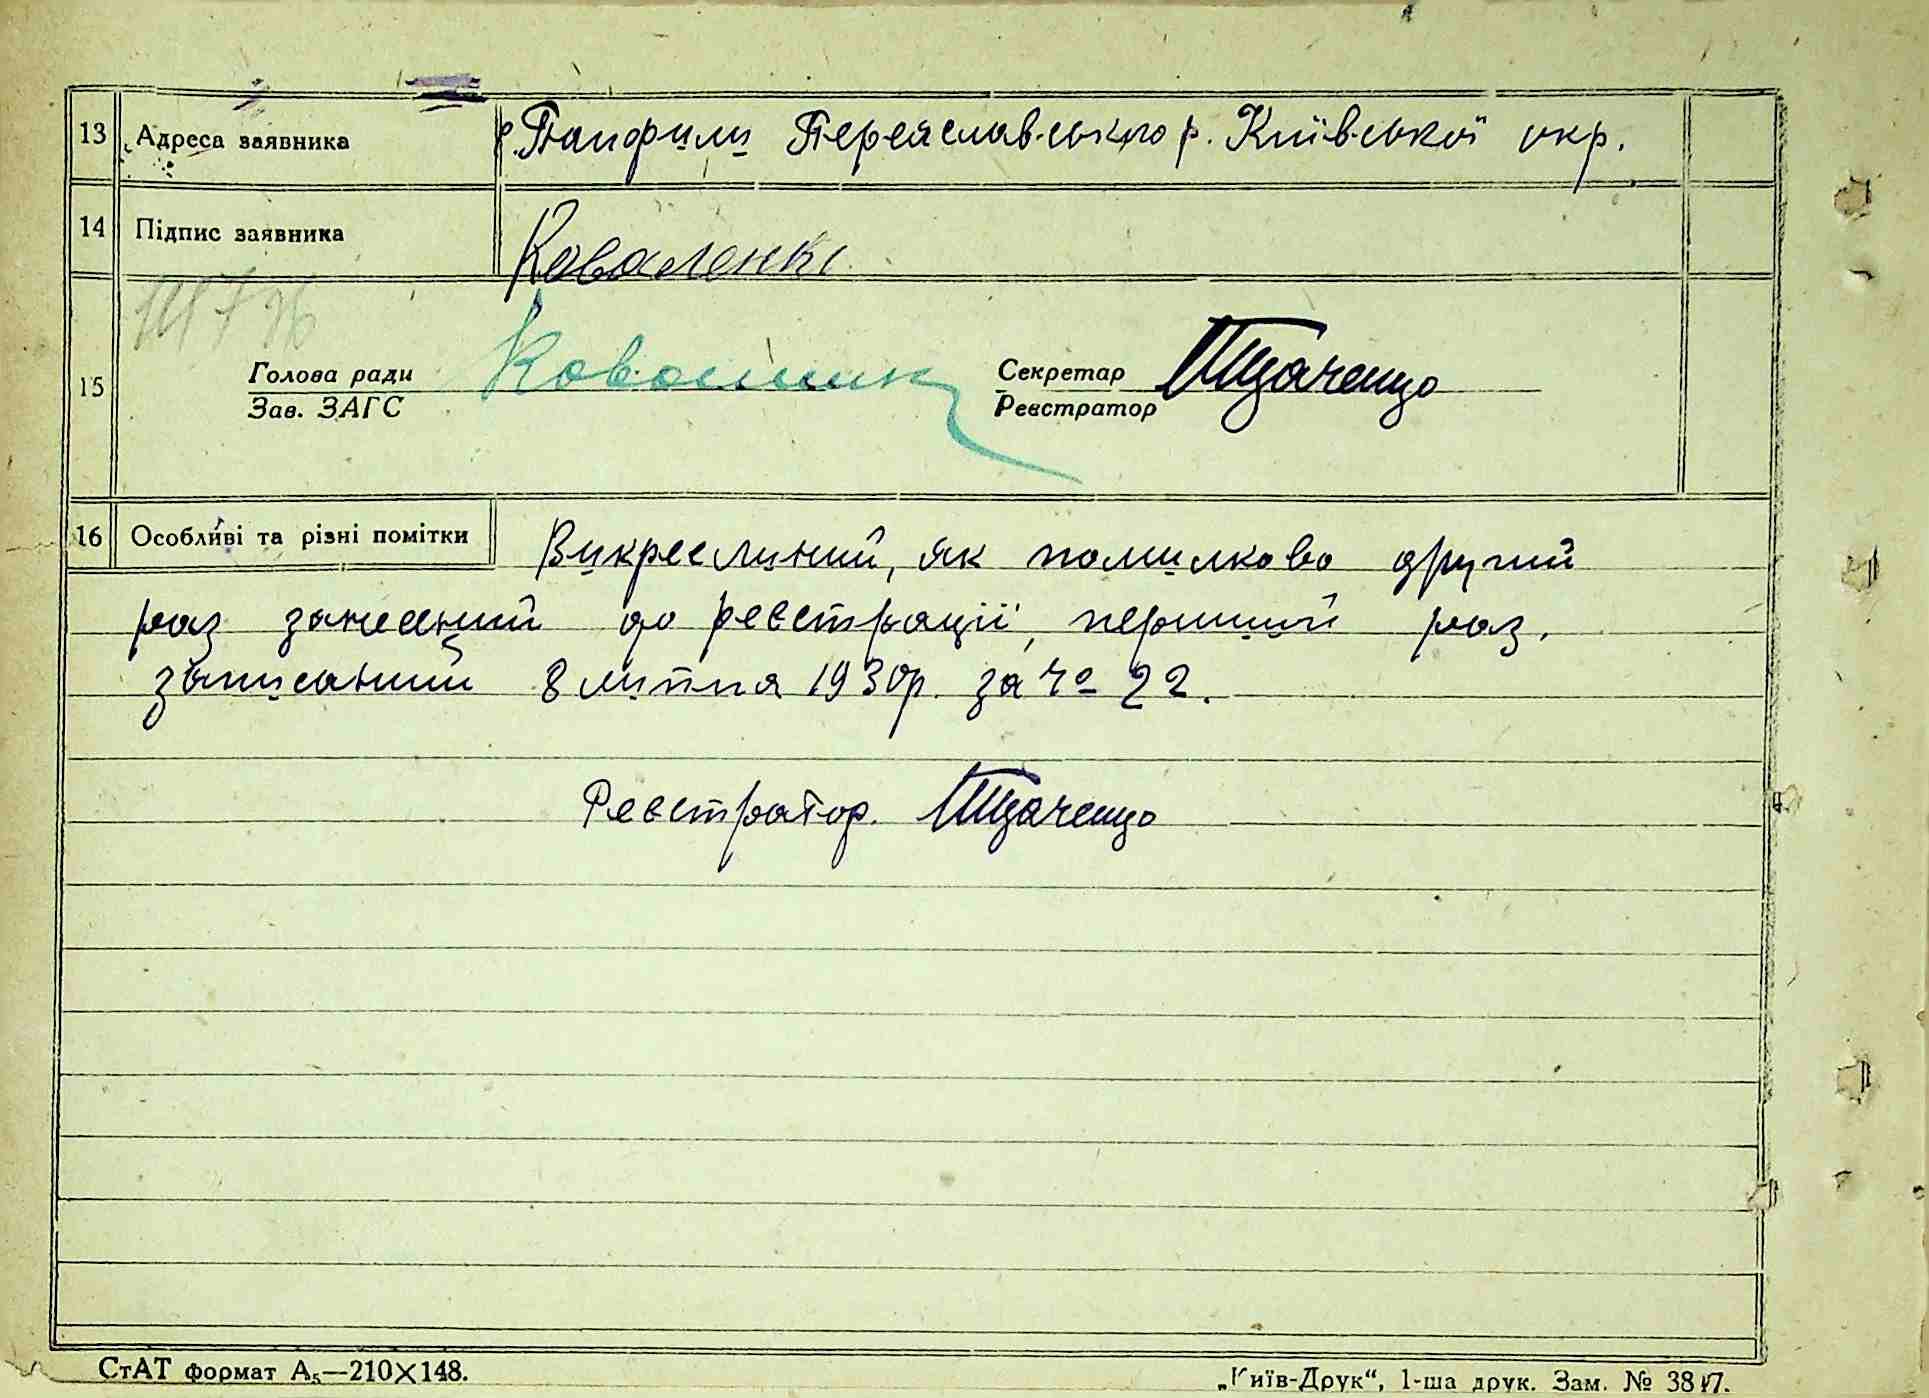 13 Адреса заявника с. Панфили Переяславського р. Київської окр.
14 Підпис заявника Коваленко
15 Голова ради Секретар Ткаченко
Зав. ЗАГС Реєстратор
16 Особливі та різні помітки Викреслиний, як помилково другий
раз занесений до реєстрації, перший раз,
записаний 8 липня 1930р. за чо 22.
Реєстратор. Ткаченко
СтАТ формат А₅—210×148.
„Київ-Друк“, 1-ша друк. Зам. №